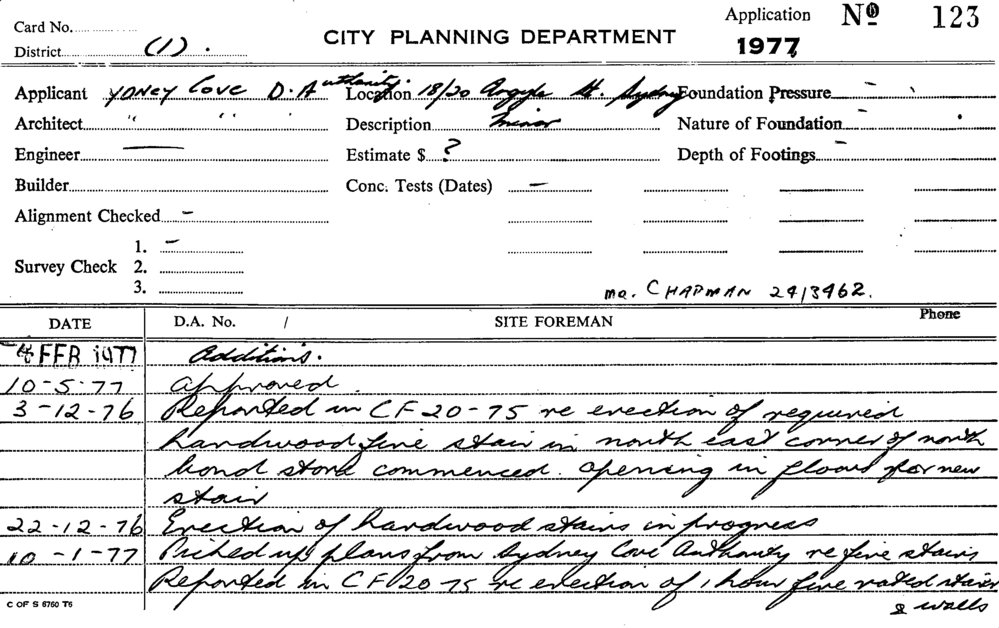 Card No.
District (1).
CITY PLANNING DEPARTMENT
Application No 123
1977
Applicant YDNEY Cove D.A uthority. Location 18/20 Argyle St. Sydney Foundation Pressure –
Architect " " " Description Minor Nature of Foundation –
Engineer — Estimate $ ? Depth of Footings –
Builder Conc. Tests (Dates) –
Alignment Checked –
Survey Check 1. –
2.
3.
MR. CHAPMAN 2413462.
DATE D.A. No. / SITE FOREMAN Phone
4 FEB 1977 Additions.
10-5-77 Approved
3-12-76 Reported in CF 20-75 re erection of required
hardwood fire stair in north east corner of north
bond store commenced. Opening in floors for new
stair
22-12-76 Erection of hardwood stairs in progress
10-1-77 Picked up plans from Sydney Cove Authority re fire stairs
Reported in CF 20-75 re erection of 1 hour fire rated stairs
& walls
C OF S 6760 T6